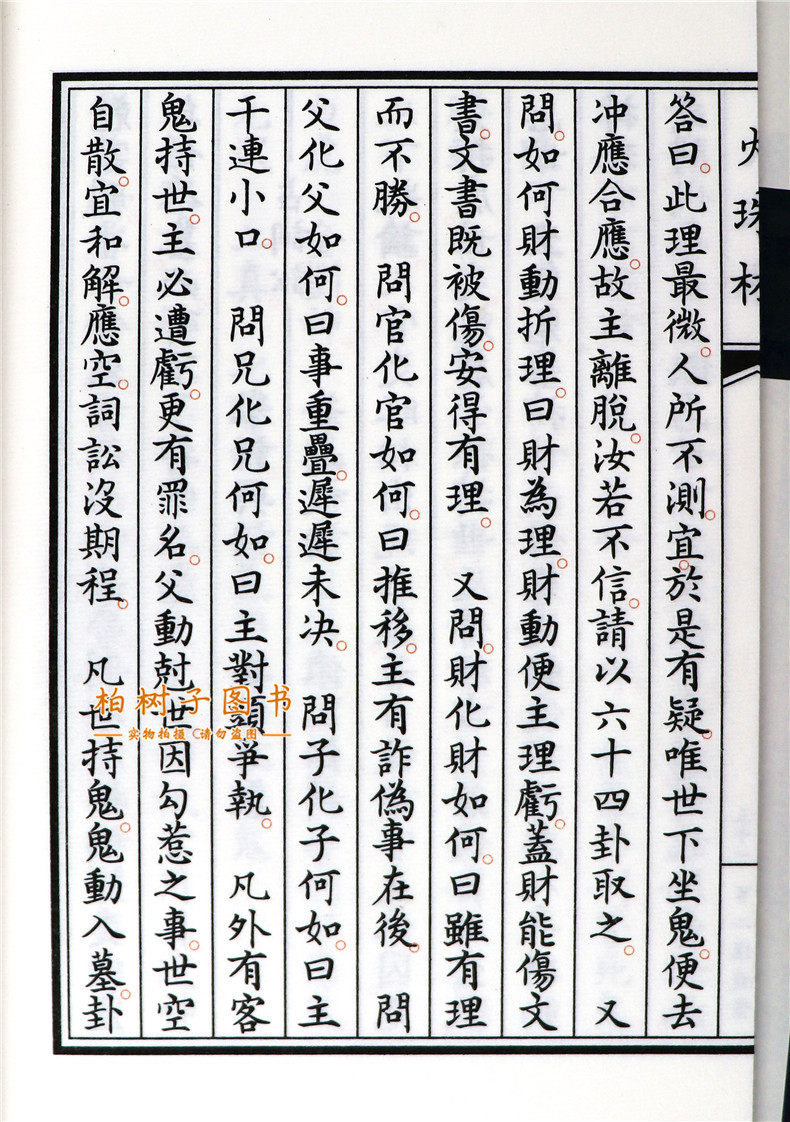 火珠林
答曰。此理最微。人所不測。宜於是有疑。唯世下坐鬼。便去
冲應合應。故主離脫。汝若不信。請以六十四卦取之。 又
問。如何財動折理。曰財為理。財動便主理虧。蓋財能傷文
書。文書既被傷。安得有理。 又問。財化財如何。曰雖有理
而不勝。 問官化官如何。曰推移。主有詐偽事在後。 問
父化父如何。曰事重疊。遲遲未決。 問子化子何如。曰主
干連小口。 問兄化兄何如。曰主對頭爭執。 凡外有客
鬼持世。主必遭虧。更有罪名。父動尅世。因勾惹之事。世空
自散。宜和解。應空。詞訟沒期程。 凡世持鬼。鬼動入墓。卦
柏树子图书
实物拍摄 请勿盗图